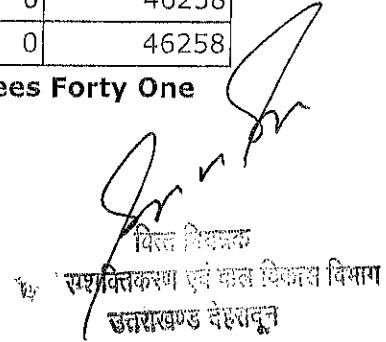 0 46258
0 46258
ees Forty One
वित्त नियंत्रक
सशक्तिकरण एवं बाल विकास विभाग
उत्तराखण्ड देहरादून